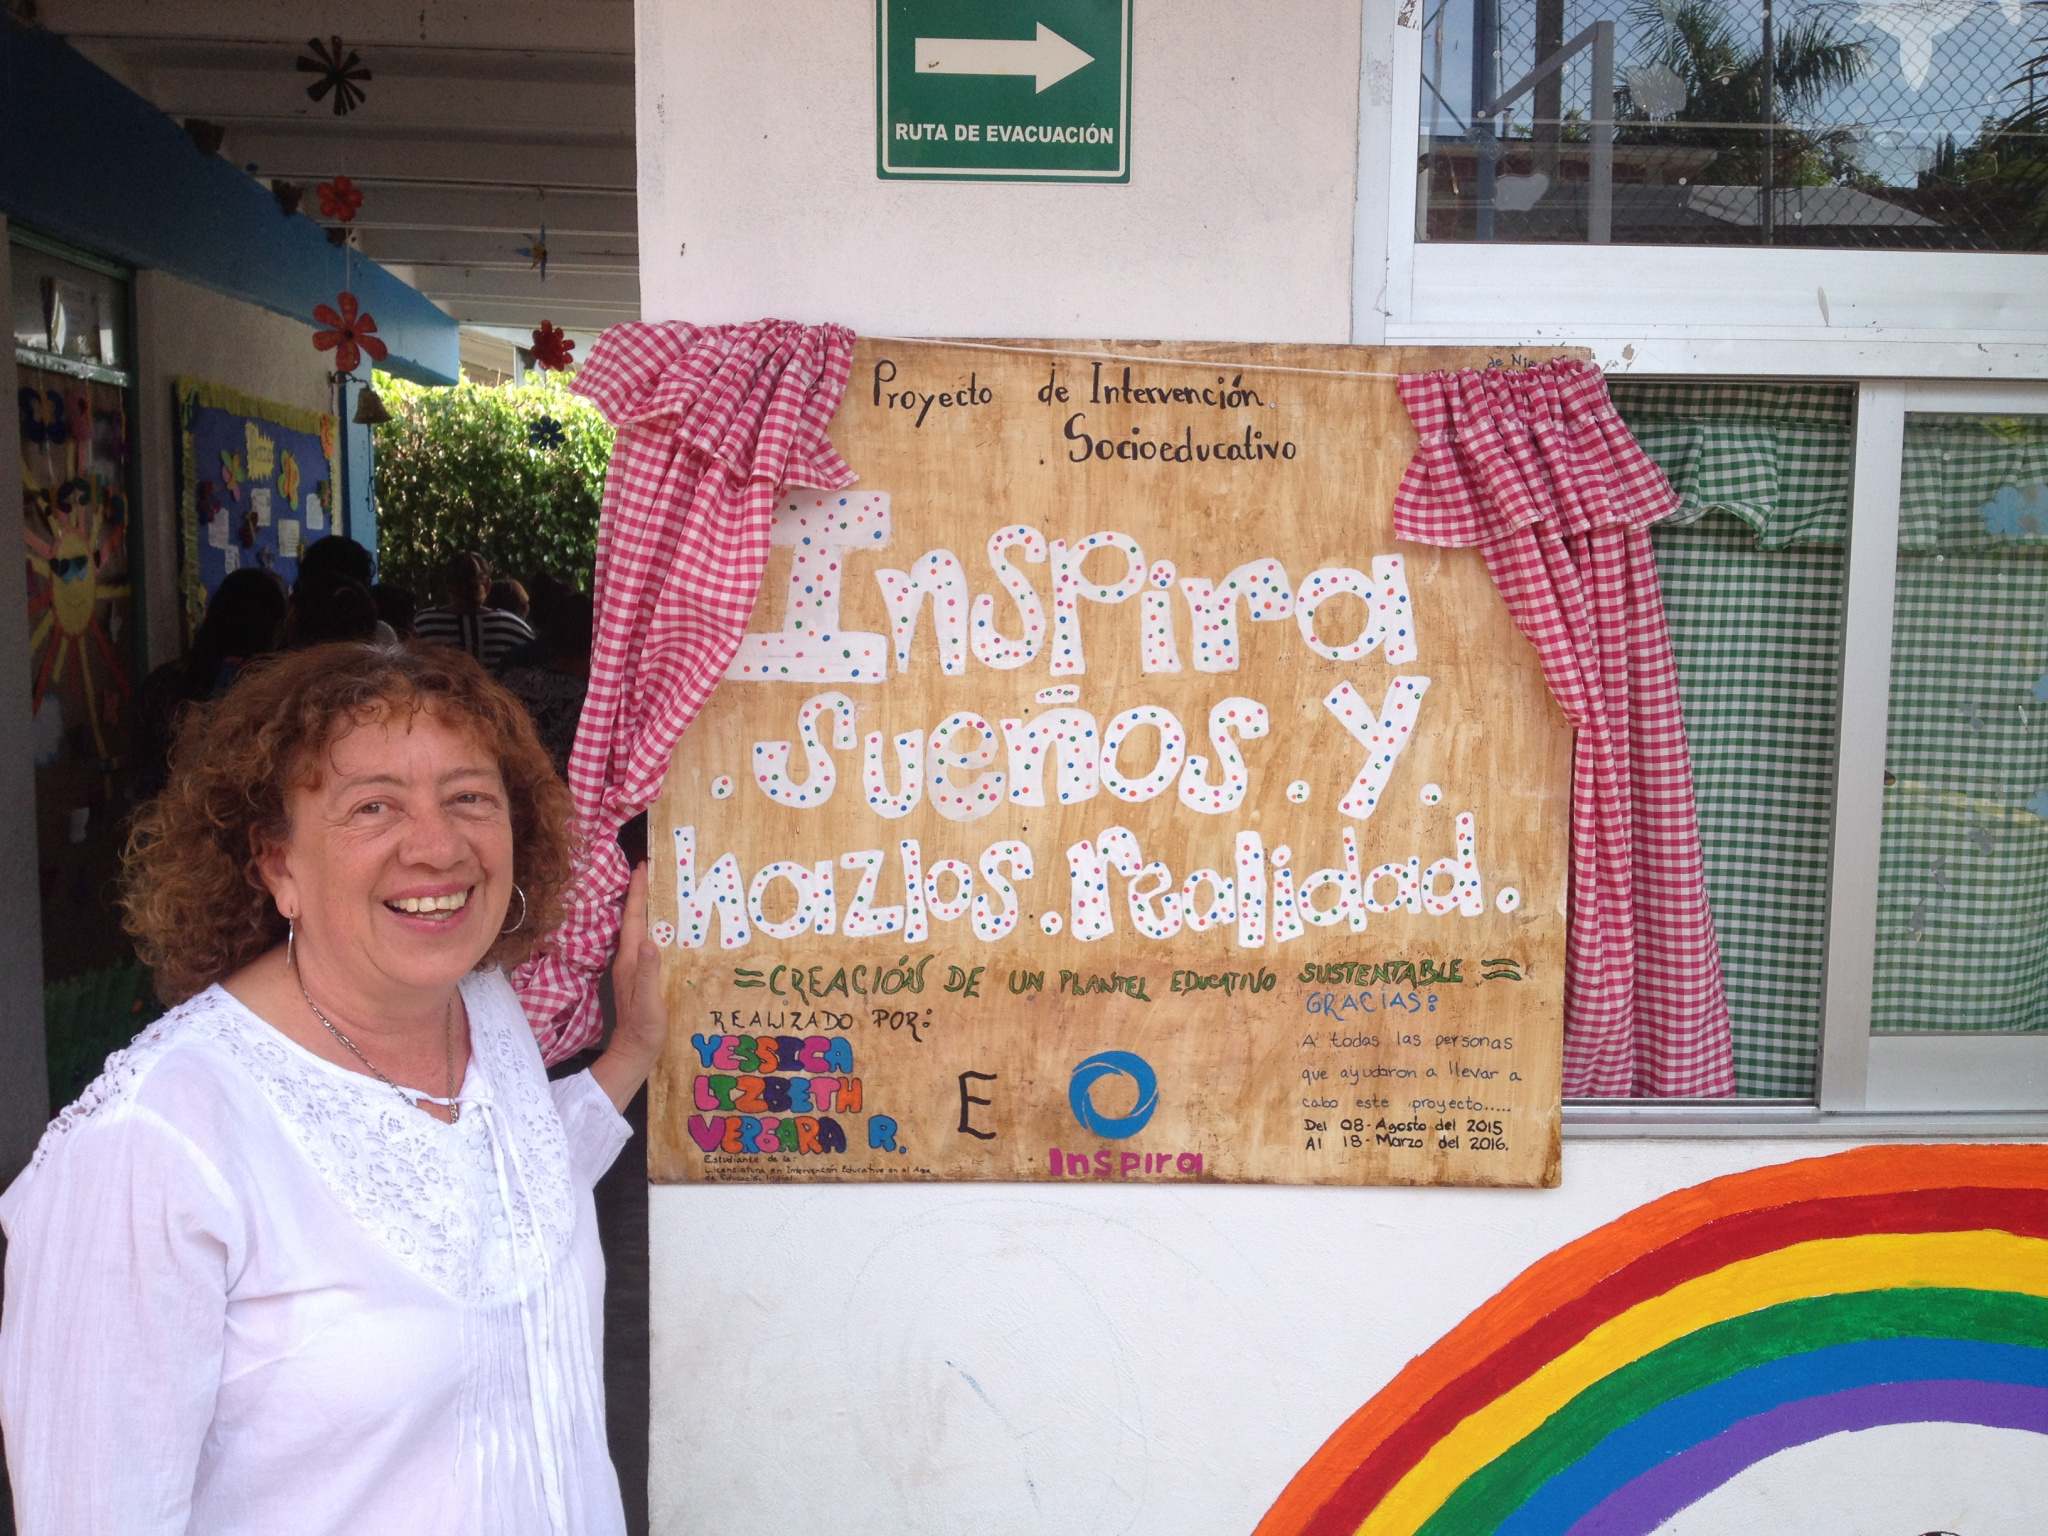 RUTA DE EVACUACIÓN
Proyecto de Intervención
Socioeducativo
Inspira
.sueños.y.
.hazlos.realidad.
=CREACIÓN DE UN PLANTEL EDUCATIVO SUSTENTABLE=
REALIZADO POR:
YESSICA
LIZBETH
VERGARA R.
Estudiante de la:
Licenciatura en Intervención Educativa en el Área
de Educación Inicial
E
Inspira
GRACIAS:
A todas las personas
que ayudaron a llevar a
cabo este proyecto.....
Del 08-Agosto del 2015
Al 18-Marzo del 2016.